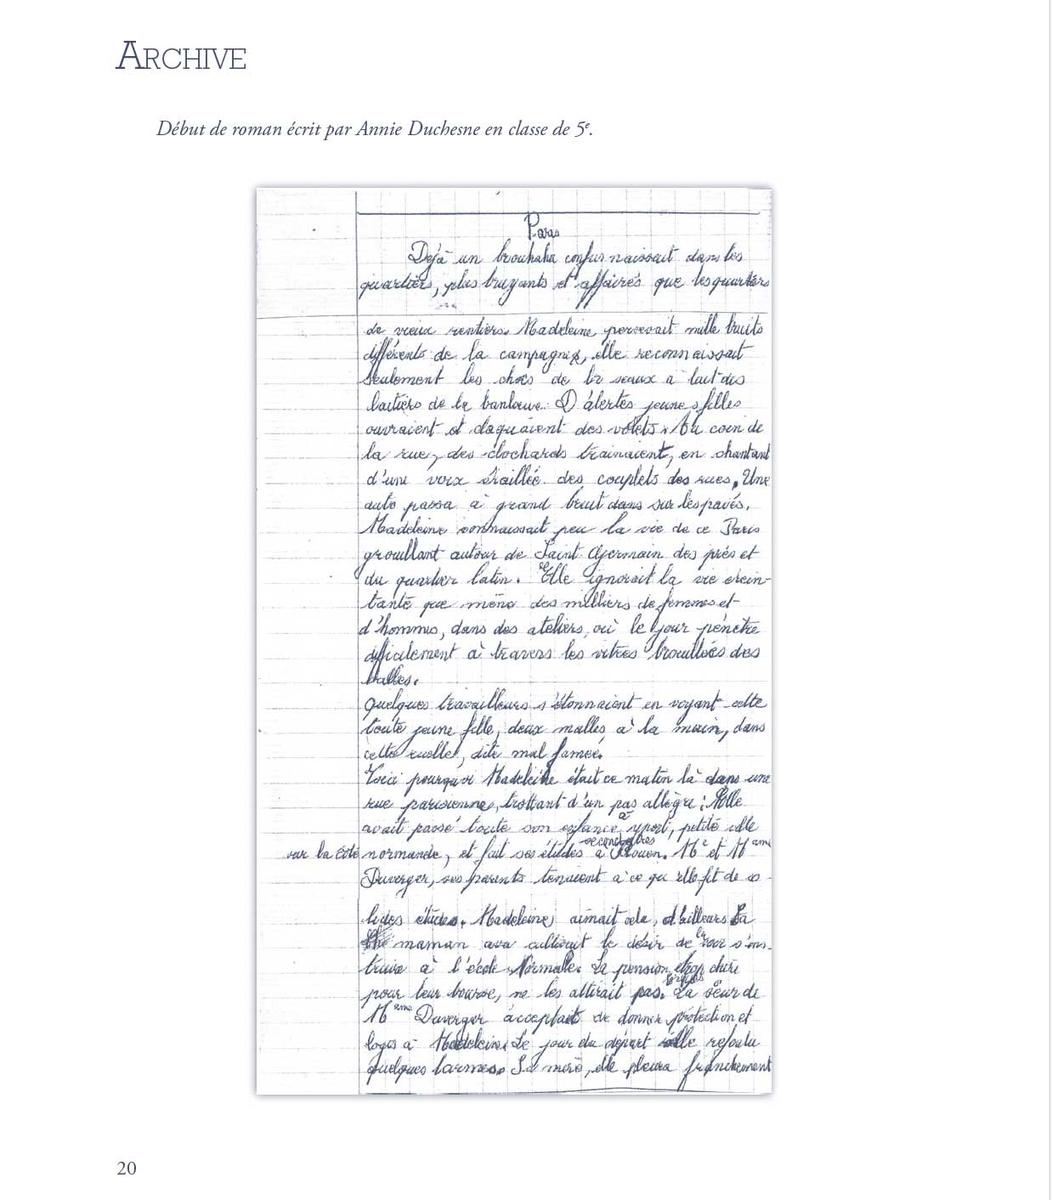 ARCHIVE
Début de roman écrit par Annie Duchesne en classe de 5e.
Paris
Déjà un brouhaha confus naissait dans les
quartiers, plus bruyants et affairés que les quartiers
de vieux rentiers. Madeleine, percevait mille bruits
différents de la campagne, elle reconnaissait
seulement les chocs de seaux à lait des
laitiers de la banlieue. D'alertes jeunes filles
ouvraient et claquaient des volets. Au coin de
la rue, des clochards trainaient, en chantant
d'une voix éraillée des couplets des rues. Une
auto passa à grand bruit dans sur les pavés.
Madeleine connaissait peu la vie de ce Paris
grouillant autour de Saint Germain des prés et
du quartier latin. Elle ignorait la vie érein-
tante que mène des milliers de femmes et
d'hommes, dans des ateliers, où le jour pénètre
difficilement à travers les vitres brouillées des
halles.
Quelques travailleurs s'étonnaient en voyant cette
toute jeune fille, deux malles à la main, dans
cette ruelle, dite mal famée.
Voici pourquoi Madeleine était ce matin là dans une
rue parisienne, trottant d'un pas allègre: Elle
avait passé toute son enfance à yport, petite ville
sur la côte normande, et fait ses études secondaires à Rouen. Mr et Mame
Duverger, ses parents tenaient à ce qu'elle fit de so-
lides études. Madeleine, aimait cela, d'ailleurs Sa
maman cultivait le désir de la voir s'ins-
truire à l'école Normale. La pension trop chère
pour leur bourse, ne les attirait pas. La sœur de
Mame Duverger acceptait de donner protection et
logis à Madeleine. Le jour du départ elle refoula
quelques larmes. Sa mère, elle pleura franchement
20